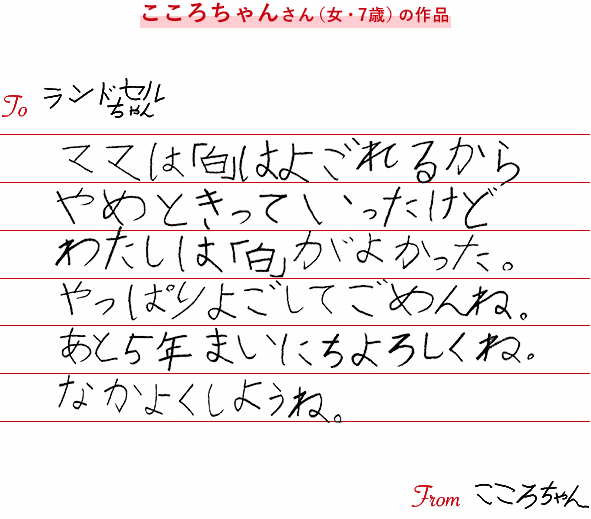 こころちゃんさん（女・7歳）の作品
To ランドセルちゃん
ママは「白」はよごれるから
やめときっていったけど
わたしは「白」がよかった。
やっぱりよごしてごめんね。
あと5年まいにちよろしくね。
なかよくしようね。
From こころちゃん